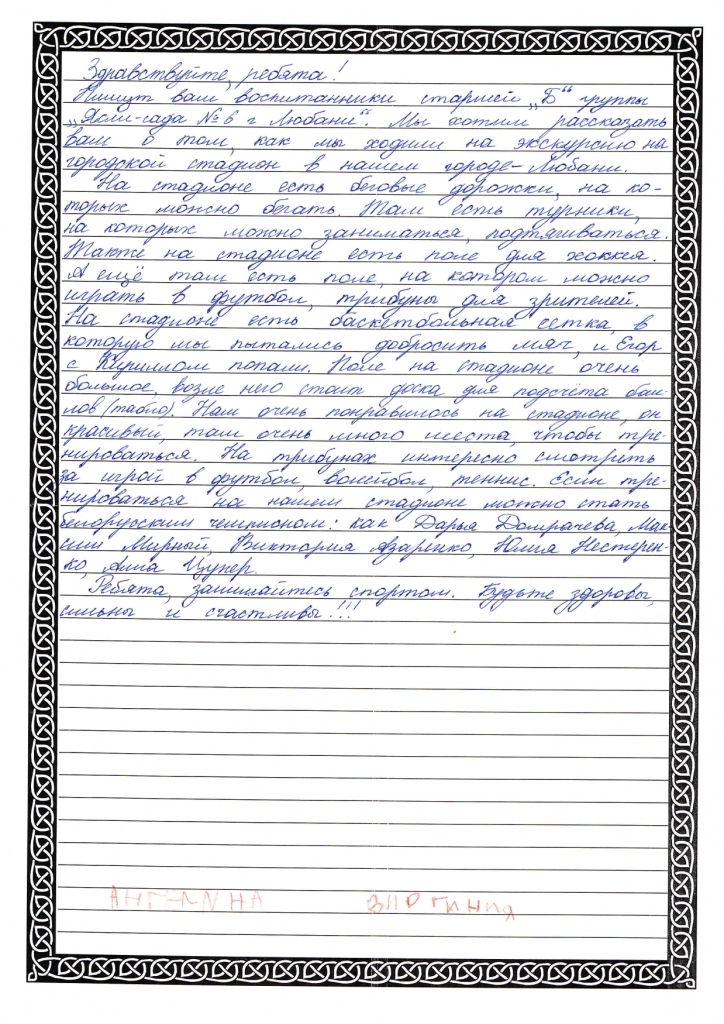 Здравствуйте, ребята!
Пишут вам воспитанники старшей „Б“ группы
„Ясли-сада № 6 г Любани“. Мы хотим рассказать
вам о том, как мы ходили на экскурсию на
городской стадион в нашем городе-Любани.
На стадионе есть беговые дорожки, на ко-
торых можно бегать. Там есть турники,
на которых можно заниматься, подтягиваться.
Также на стадионе есть поле для хоккея.
А ещё там есть поле, на котором можно
играть в футбол, трибуны для зрителей.
На стадионе есть баскетбольная сетка, в
которую мы пытались добросить мяч, и Егор
с Кириллом попали. Поле на стадионе очень
большое, возле него стоит доска для подсчёта бал-
лов (табло). Нам очень понравилось на стадионе, он
красивый, там очень много места, чтобы тре-
нироваться. На трибунах интересно смотреть
за игрой в футбол, волейбол, теннис. Если тре-
нироваться на нашем стадионе можно стать
белорусским чемпионом: как Дарья Домрачева, Мак-
сим Мирный, Виктория Азаренко, Юлия Нестерен-
ко, Алла Цупер.
Ребята, занимайтесь спортом. Будьте здоровы,
сильны и счастливы!!!
АНГЕЛИНА ВИРГИНИЯ